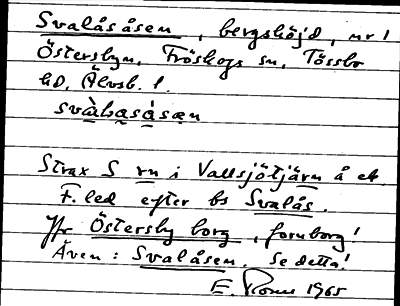 Svalåsåsen, bergshöjd, nr 1
Östersbyn, Fröskogs sn, Tössbo
hd, Älvsb. l.
svàḷasásæn
Strax S vn i Vallsjötjärn å ek
F. led efter bs Svalås.
Jfr Östersby borg, fornborg!
Även: Svalåsen. Se detta!
E 1965